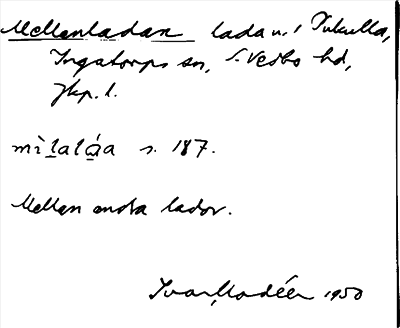 Mellanladan lada u. i Pukulla,
Ingatorps sn, S. Vedbo hd,
Jkp. l.
mìlaláa s. 187.
Mellan andra lador.
Ivar Modéer 1950